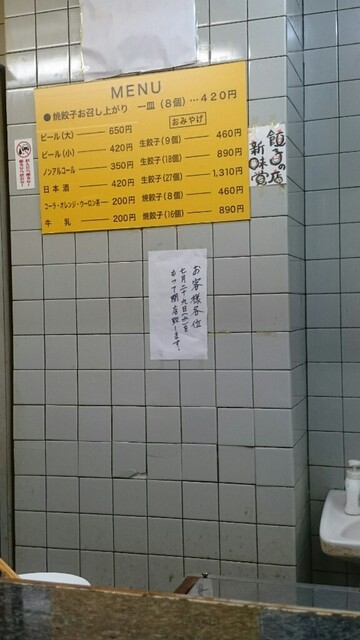 MENU
●焼餃子お召し上がり 一皿(8個)…420円
おみやげ
ビール(大) 650円 生餃子(9個) 460円
ビール(小) 420円 生餃子(18個) 890円
ノンアルコール 350円 生餃子(27個) 1,310円
日本酒 420円 焼餃子(8個) 460円
コーラ・オレンジ・ウーロン茶 200円 焼餃子(16個) 890円
牛乳 200円
餃子の店
新味覚
お客様各位
七月二十九日(水)
もって閉店致します。